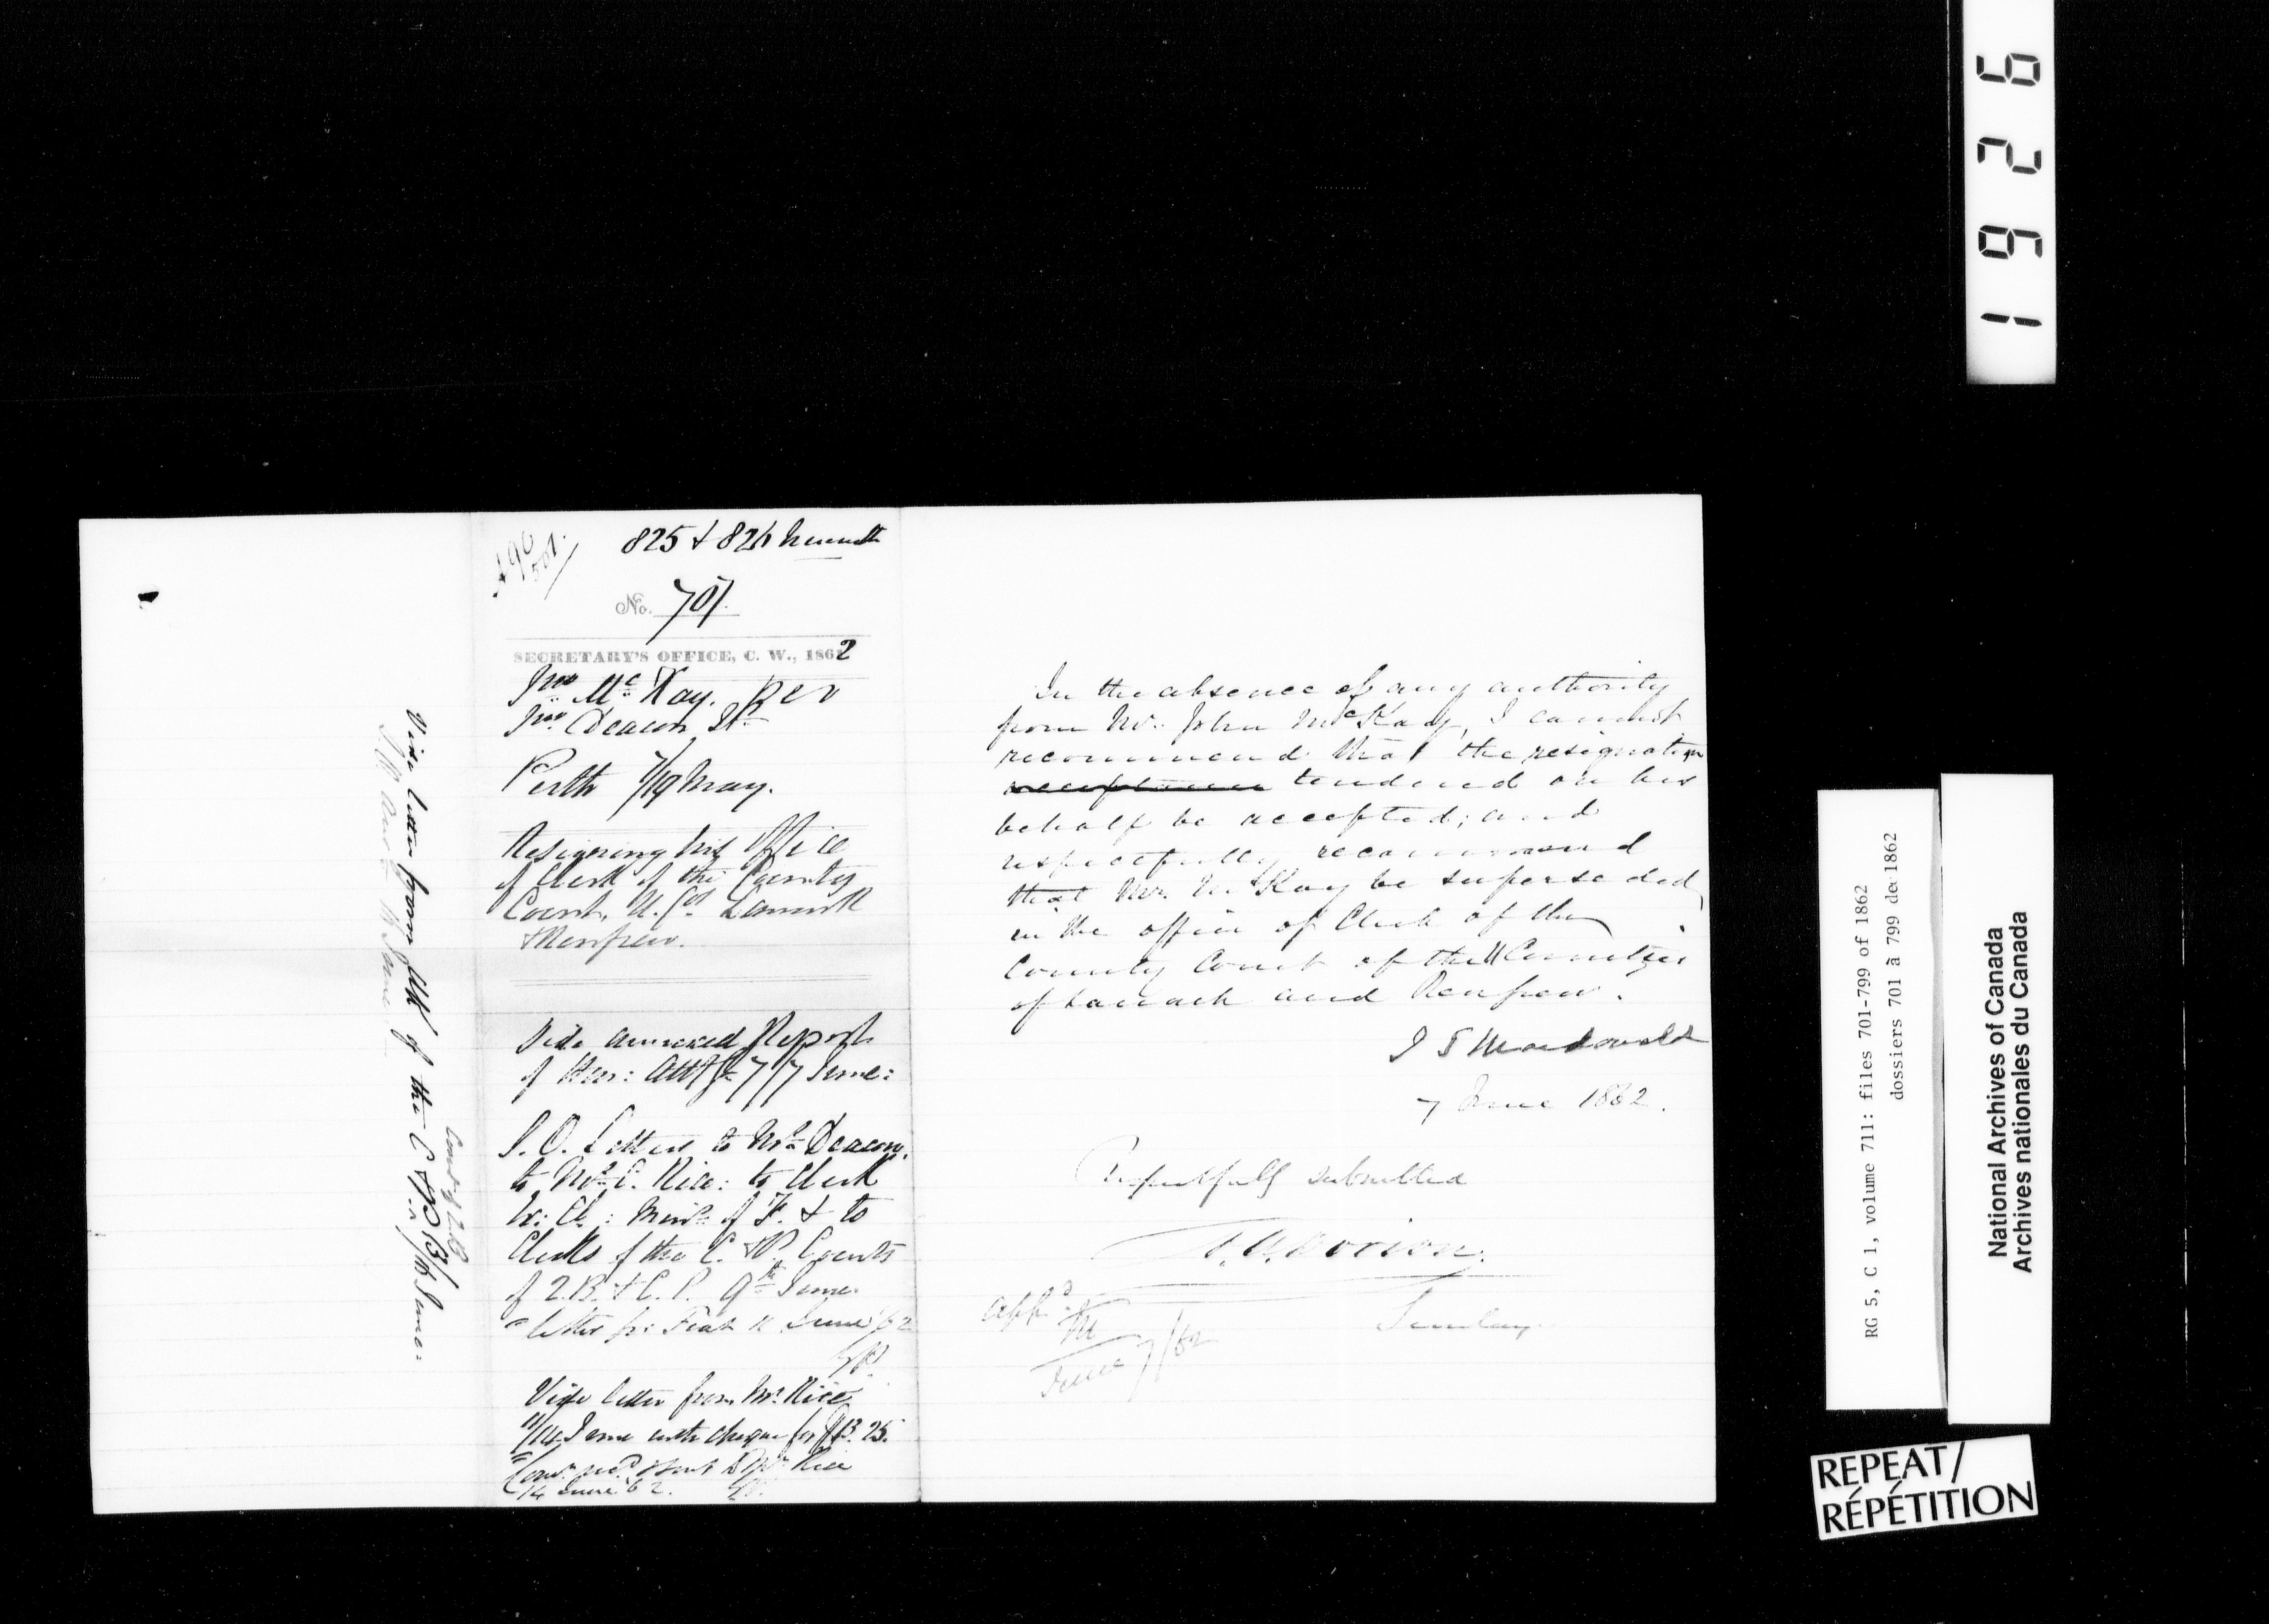 1926
825 & 826 herewith
No. 701.
SECRETARY'S OFFICE, C. W., 1862
Jno. McKay. per
Jno. Deacon Jr.
Perth 7/19 May.
Resigning his Office
of Clerk of the County
Court, U. Cos. Lanark
& Renfrew.
Vide annexed Report
of Hon: Atty Gl 7/7 June:
S. O. Letters to Mr. Deacon,
to Mr. C. Rice: to Clerk
Ex: Cl: Minr. of F. & to
Clerks of the C. & P. Courts
of Q.B. & C. P. 9th June.
letter for Fiat 11 June 62
Vide letter from Mr. Rice
11/14 June with cheque for
sent to Mr. Rice
14 June 62.
Vide letter from Clk of the C & P in
Court of Q.B. June:
In the absence of any authority
from Mr. John McKay, I cannot
recommend that the resignation
tendered on his
behalf be accepted; and
respectfully recommend
that Mr. McKay be superseded
in the office of Clerk of the
County Court of the U Counties
of Lanark and Renfrew.
J S Macdonald
7 June 1862.
Respectfully submitted
A. A. Dorion.
Appd.
M
June 7/62
RG 5, C 1, volume 711: files 701-799 of 1862
dossiers 701 à 799 de 1862
National Archives of Canada
Archives nationales du Canada
REPEAT/
RÉPÉTITION